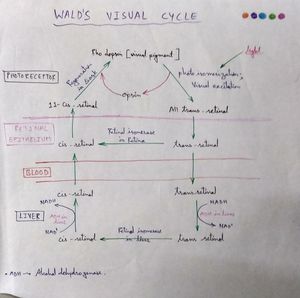 WALD'S VISUAL CYCLE
Rhodopsin [visual pigment]
light
PHOTORECEPTOR
in dark
photo isomerization,
Visual excitation
opsin
11-Cis-retinal
All trans-retinal
RETINAL
EPITHELIUM
Cis-retinal
Retinal isomerase
in Retina
trans-retinal
BLOOD
Cis-retinal
trans-retinal
NADH
NADH
LIVER
ADH in
liver
ADH in liver
NAD+
NAD+
Cis-retinal
Retinal isomerase
in liver
trans retinal
• ADH → Alcohol dehydrogenase.